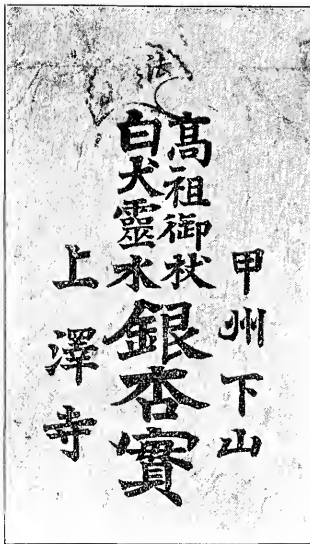 甲州下山
高祖御杖
白犬靈水
銀杏實
上澤寺